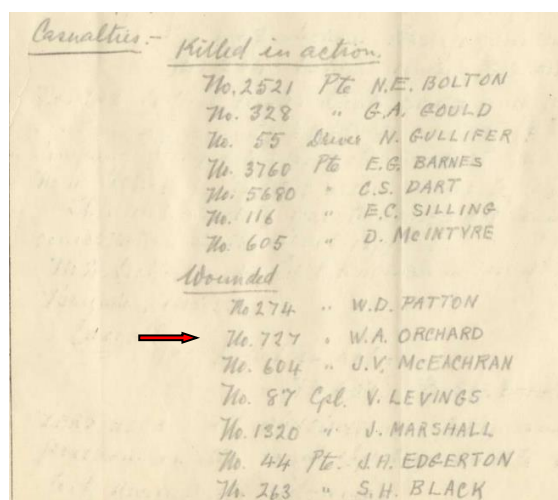 Casualties:-
Killed in action.
No. 2521 Pte N.E. BOLTON
No. 328 " G.A. GOULD
No. 55 Driver N. GULLIFER
No. 3760 Pte E.G. BARNES
No. 5680 " C.S. DART
No. 116 " E.C. SILLING
No. 605 " D. McINTYRE
Wounded
No 274 " W.D. PATTON
No. 727 " W.A. ORCHARD
No. 604 " J.V. McEACHRAN
No. 87 Cpl. V. LEVINGS
No. 1320 " J. MARSHALL
No. 44 Pte. J.H. EDGERTON
No. 263 " S.H. BLACK